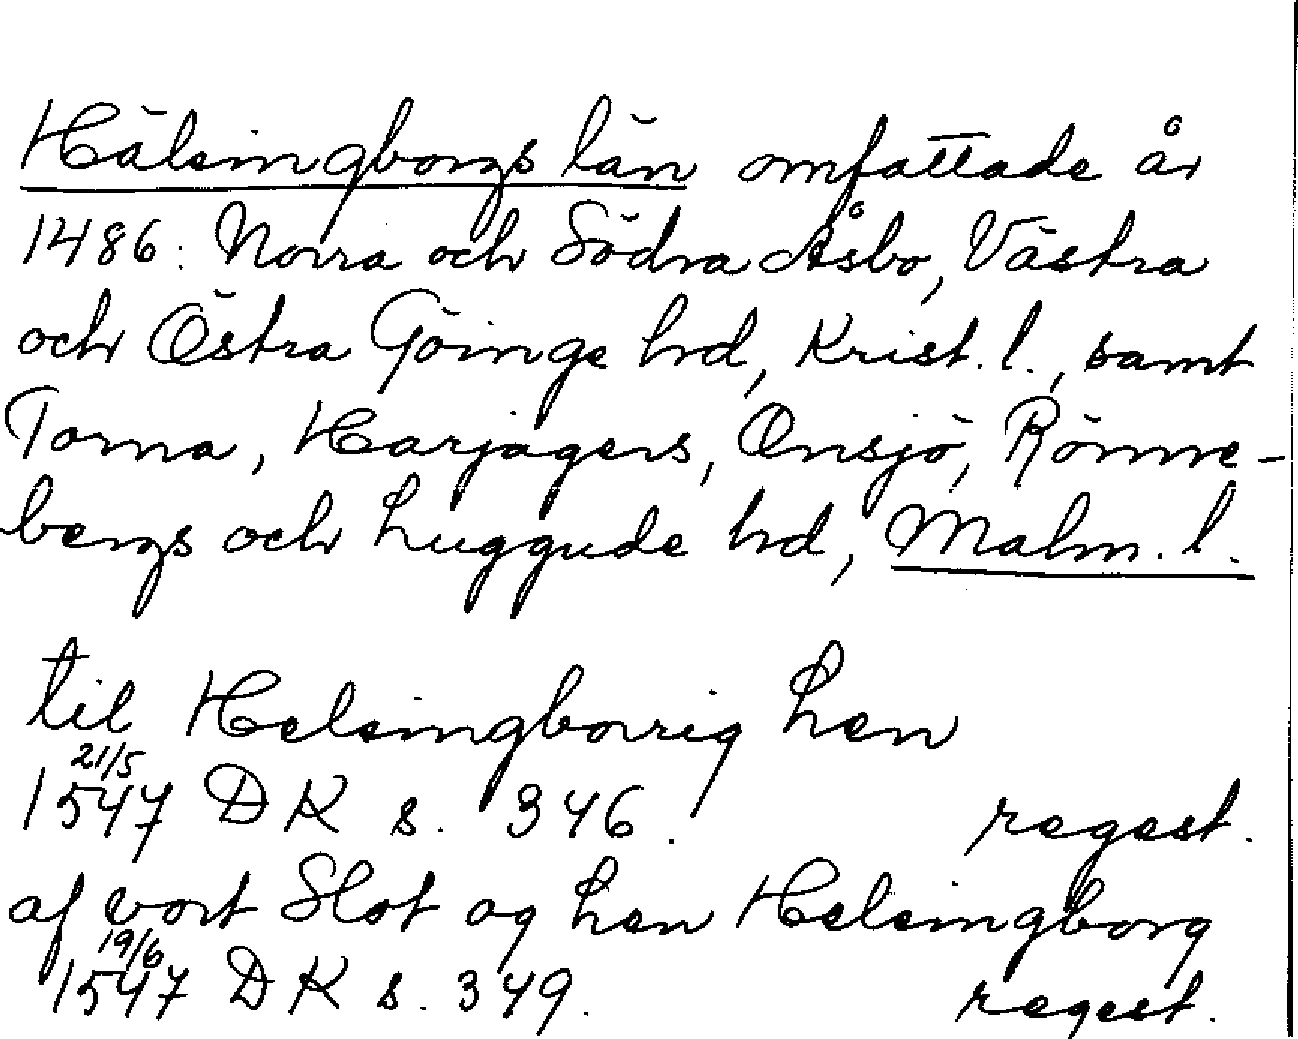 Hälsingborgs län omfattade år
1486: Norra och Södra Åsbo, Västra
och Östra Göinge hrd, Krist. l., samt
Torna, Harjagers, Onsjö, Rönne-
bergs och Luggude hrd, Malm. l.
til Helsingborrig Len
21/5
1547 DK s. 346. regest.
af vort Slot og Len Helsingborg
19/6
1547 DK s. 349. regest.